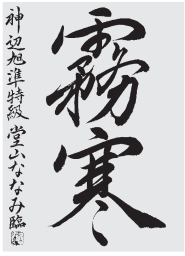 霧寒
神辺旭準特級 堂山ななみ臨